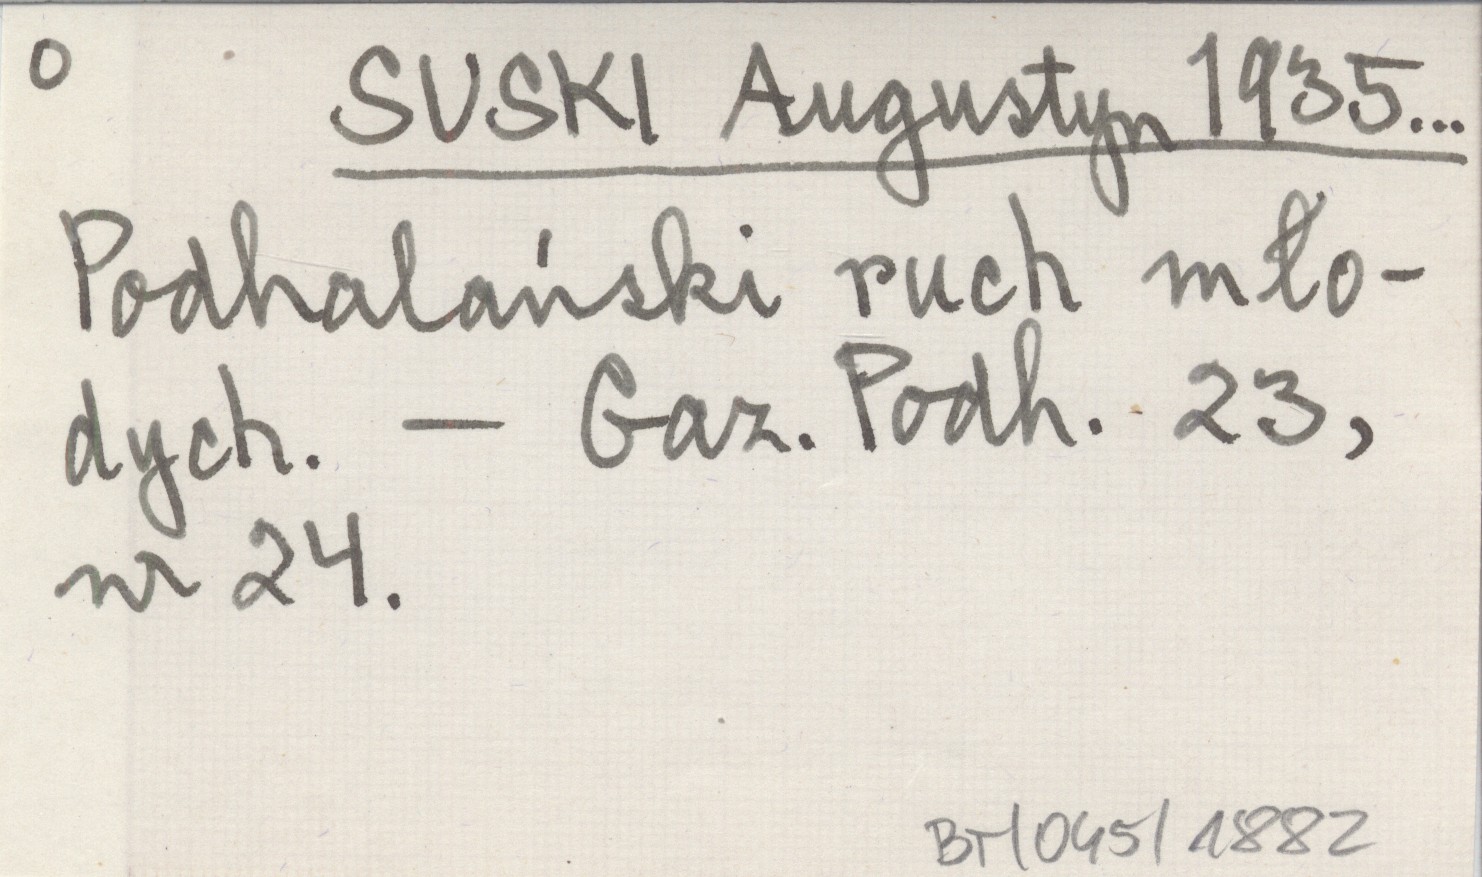 O
SUSKI Augustyn 1935...
Podhalański ruch mło-
dych. — Gaz. Podh. 23,
nr 24.
BT/045/1882